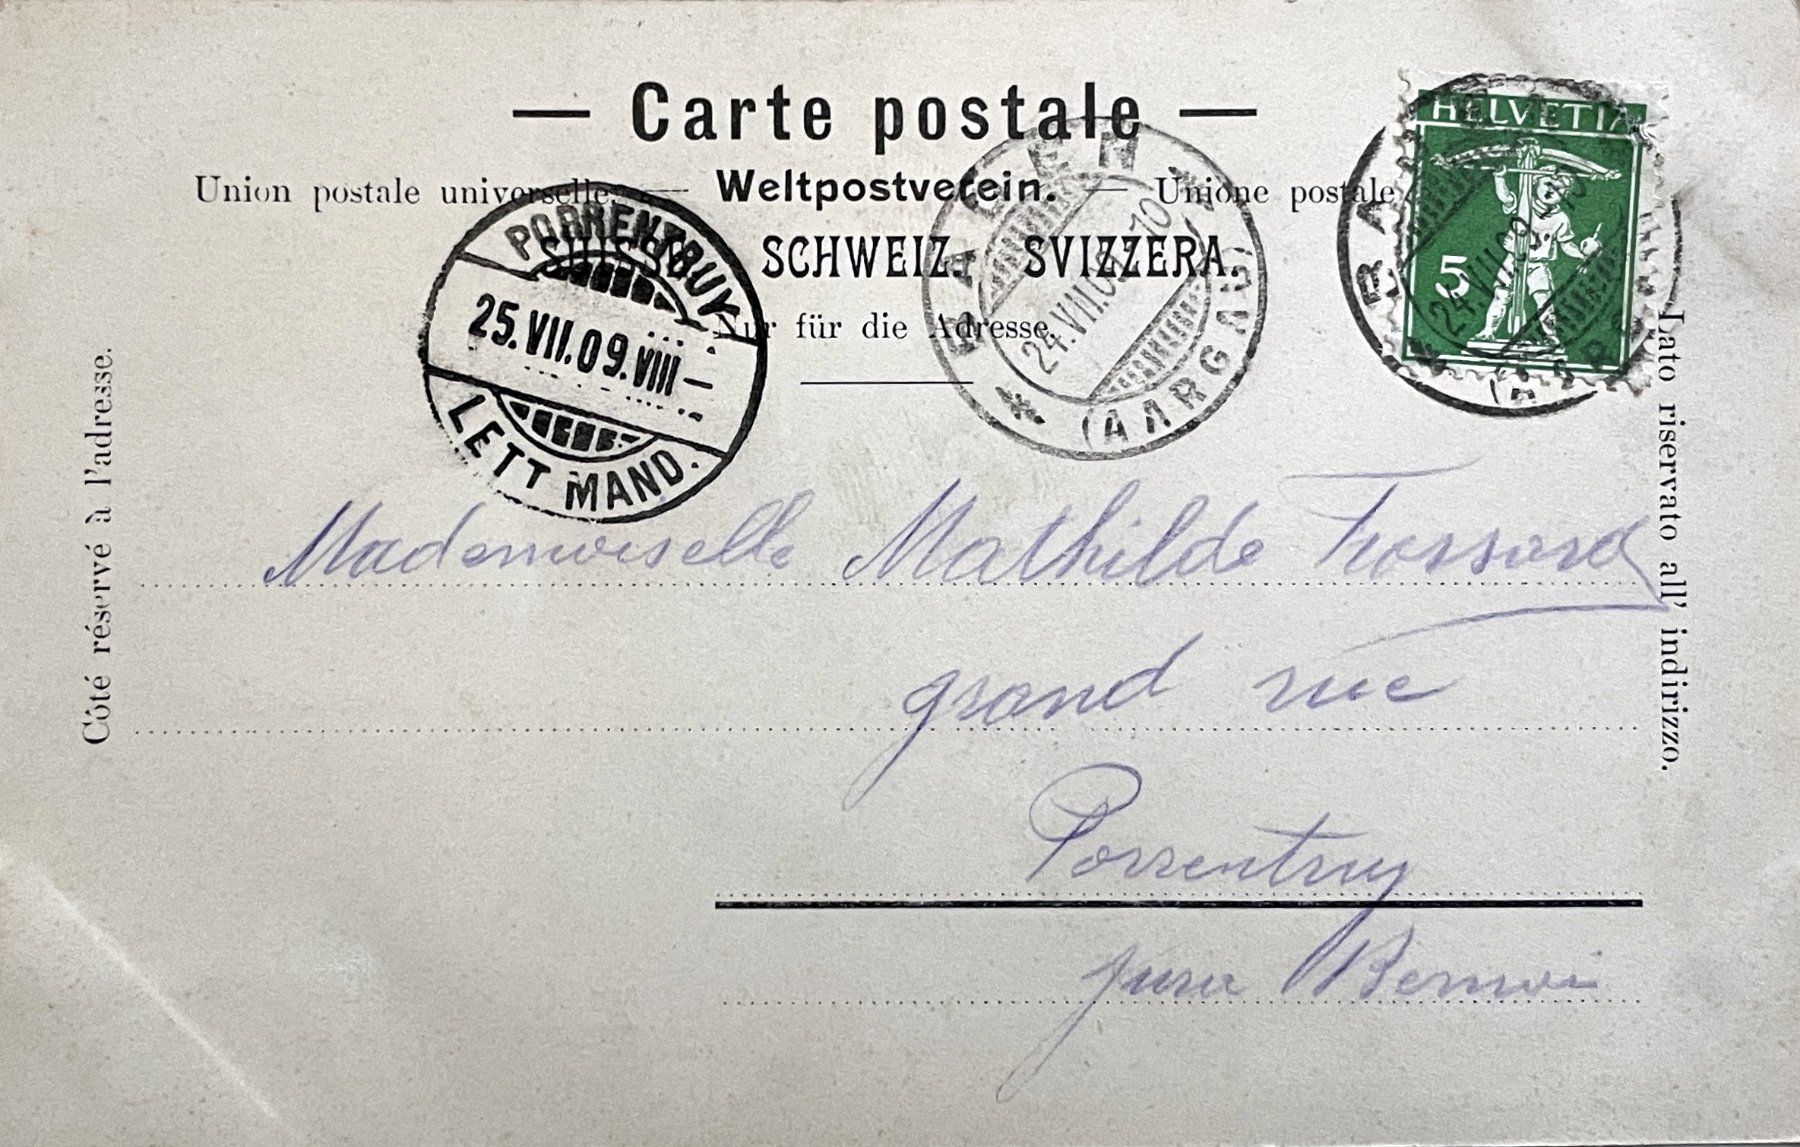 — Carte postale —
Union postale universelle. — Weltpostverein. — Unione postale
SUISSE. SCHWEIZ. SVIZZERA.
Nur für die Adresse.
HELVETIA
5
PORRENTRUY
25.VII.09.VIII—
LETT MAND.
BADEN
24.VII.09.-10
(AARGAU)
BA
24.VII.09.-10
Côté réservé à l'adresse.
Lato riservato all' indirizzo.
Mademoiselle Mathilde Frossard
grand rue
Porrentruy
jura Bernoi